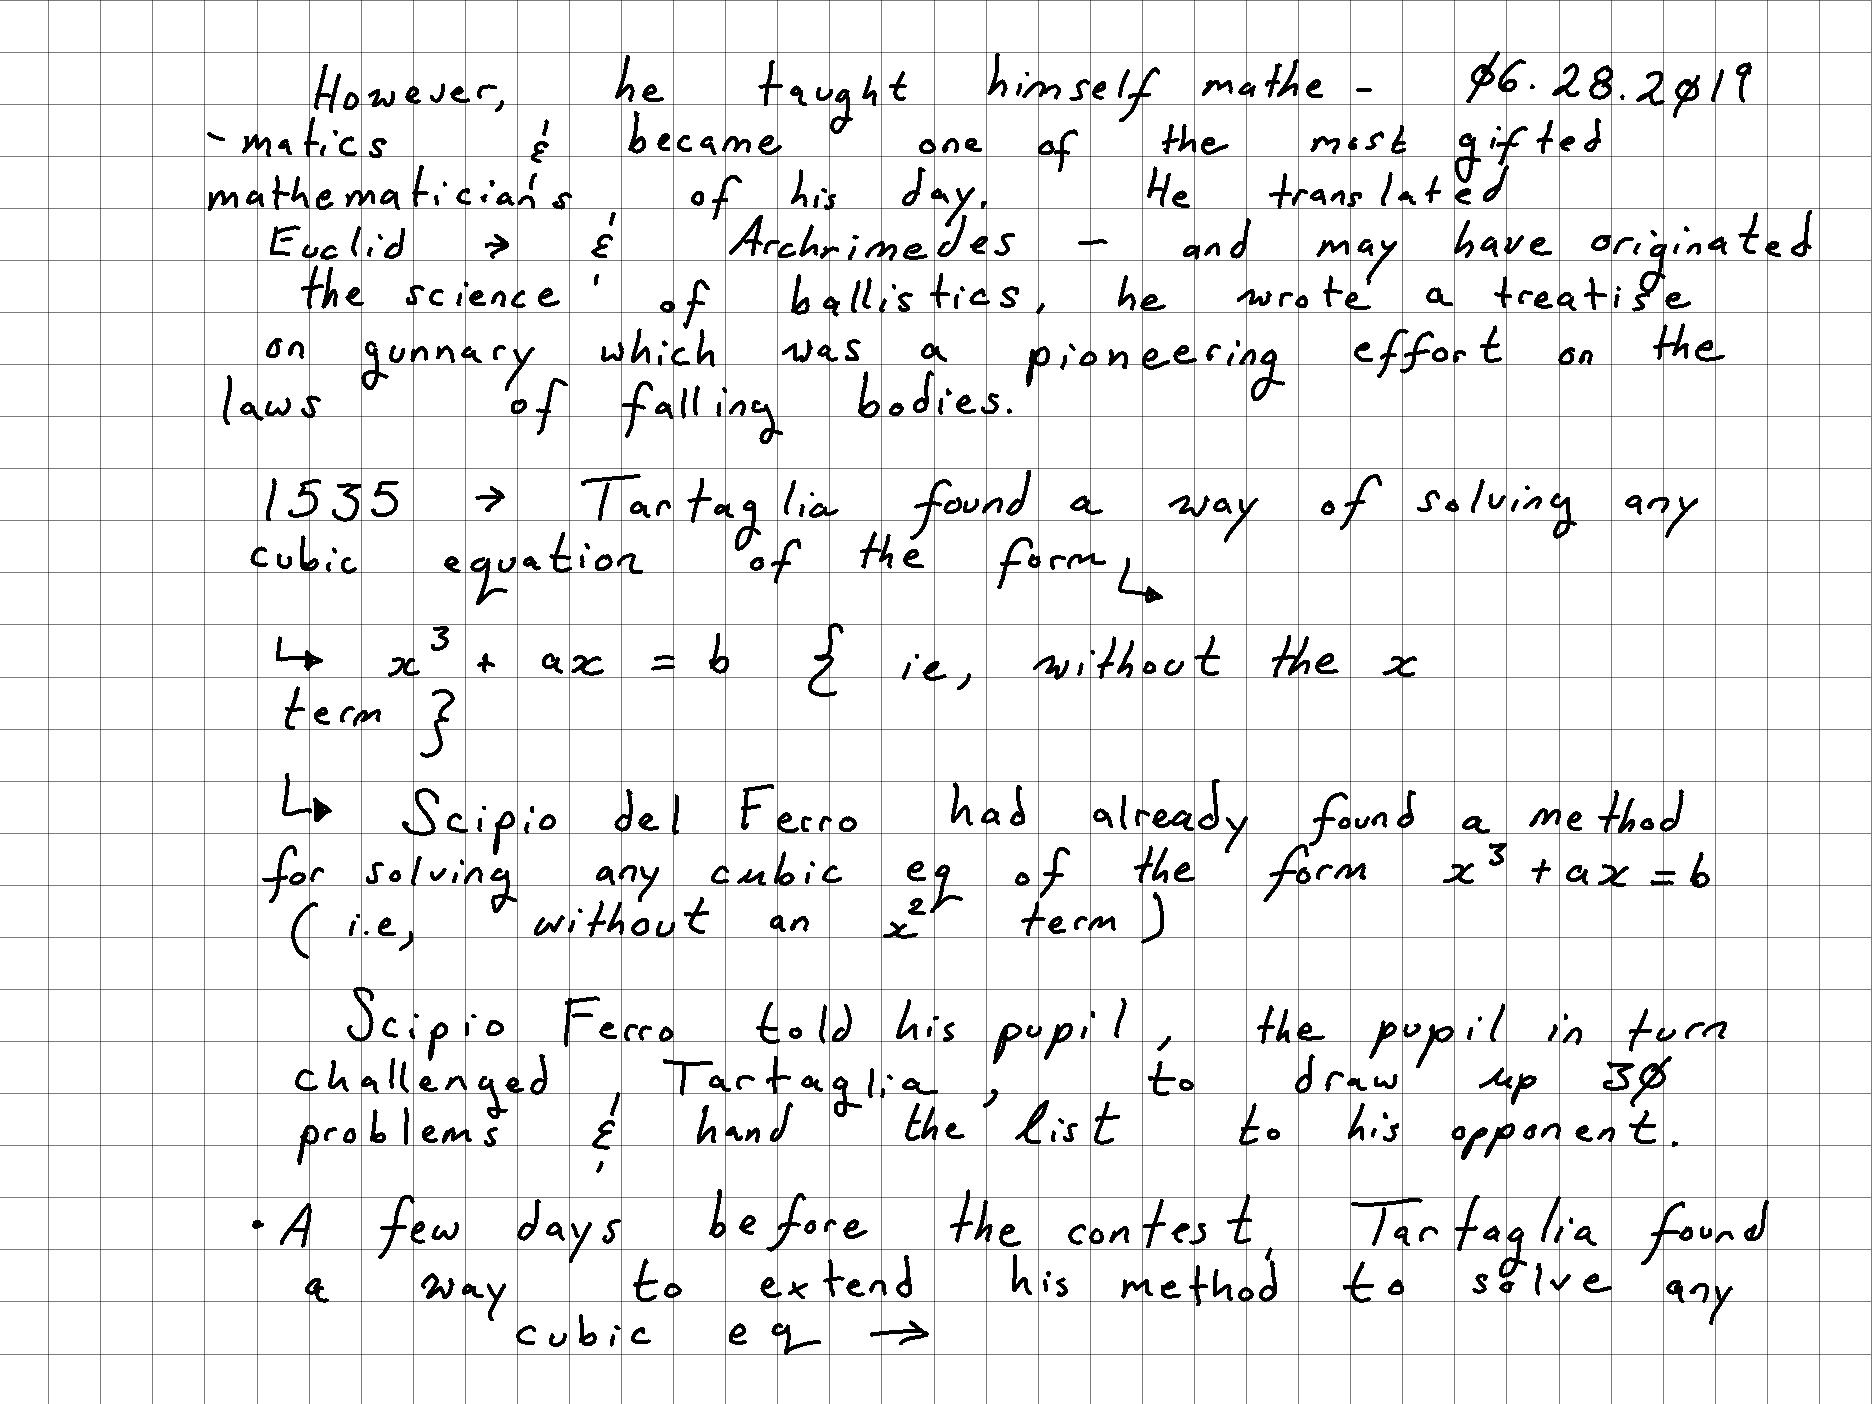 However, he taught himself mathe - 06.28.2019
- matics & became one of the most gifted
mathematicians of his day. He translated
Euclid → & Archrimedes - and may have originated
the science of ballistics, he wrote a treatise
on gunnary which was a pioneering effort on the
laws of falling bodies.
1535 → Tartaglia found a way of solving any
cubic equation of the form ↳
↳ x³ + ax = b { ie, without the x
term }
↳ Scipio del Ferro had already found a method
for solving any cubic eq of the form x³ + ax = b
( i.e, without an x² term )
Scipio Ferro told his pupil, the pupil in turn
challenged Tartaglia, to draw up 30
problems & hand the list to his opponent.
• A few days before the contest, Tartaglia found
a way to extend his method to solve any
cubic eq →